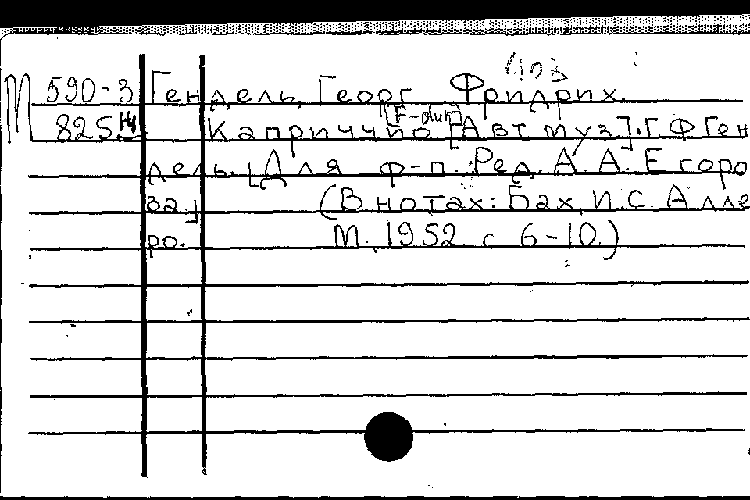 М 590-3 Гендель, Георг Фридрих.
825 Каприччио [F-dur] [Авт муз]. Г.Ф Ген
дель. [Для ф-п. Ред. А. А. Егоро
ва.] (В нотах: Бах, И.С. Алле
ро. М. 1952 с 6-10.)